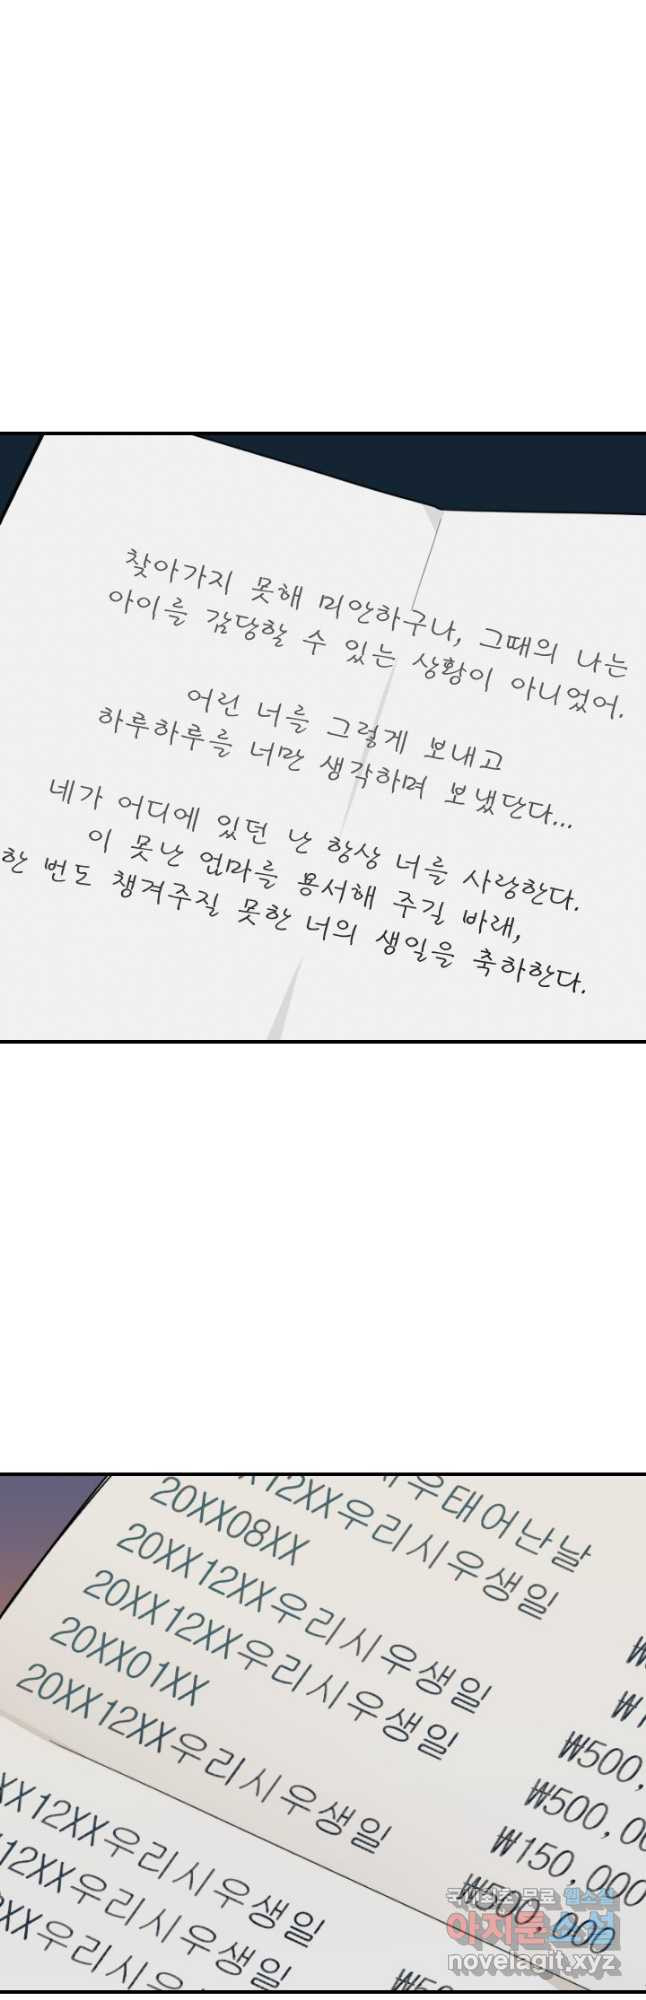 찾아가지 못해 미안하구나, 그때의 나는
아이를 감당할 수 있는 상황이 아니었어.
어린 너를 그렇게 보내고
하루하루를 너만 생각하며 보냈단다...
네가 어디에 있던 난 항상 너를 사랑한다.
이 못난 엄마를 용서해 주길 바래,
한 번도 챙겨주질 못한 너의 생일을 축하한다.
시우태어난날
12XX우리시우생일
20XX08XX
20XX12XX우리시우생일
20XX12XX우리시우생일 ₩500,
20XX01XX ₩500,00
20XX12XX우리시우생일 ₩150,000
₩500,000
XX12XX우리시우생일
12XX우리시우생일
XX우리시우생일
국내최초 무료 웹소설
아지툰소설
novelagit.xyz